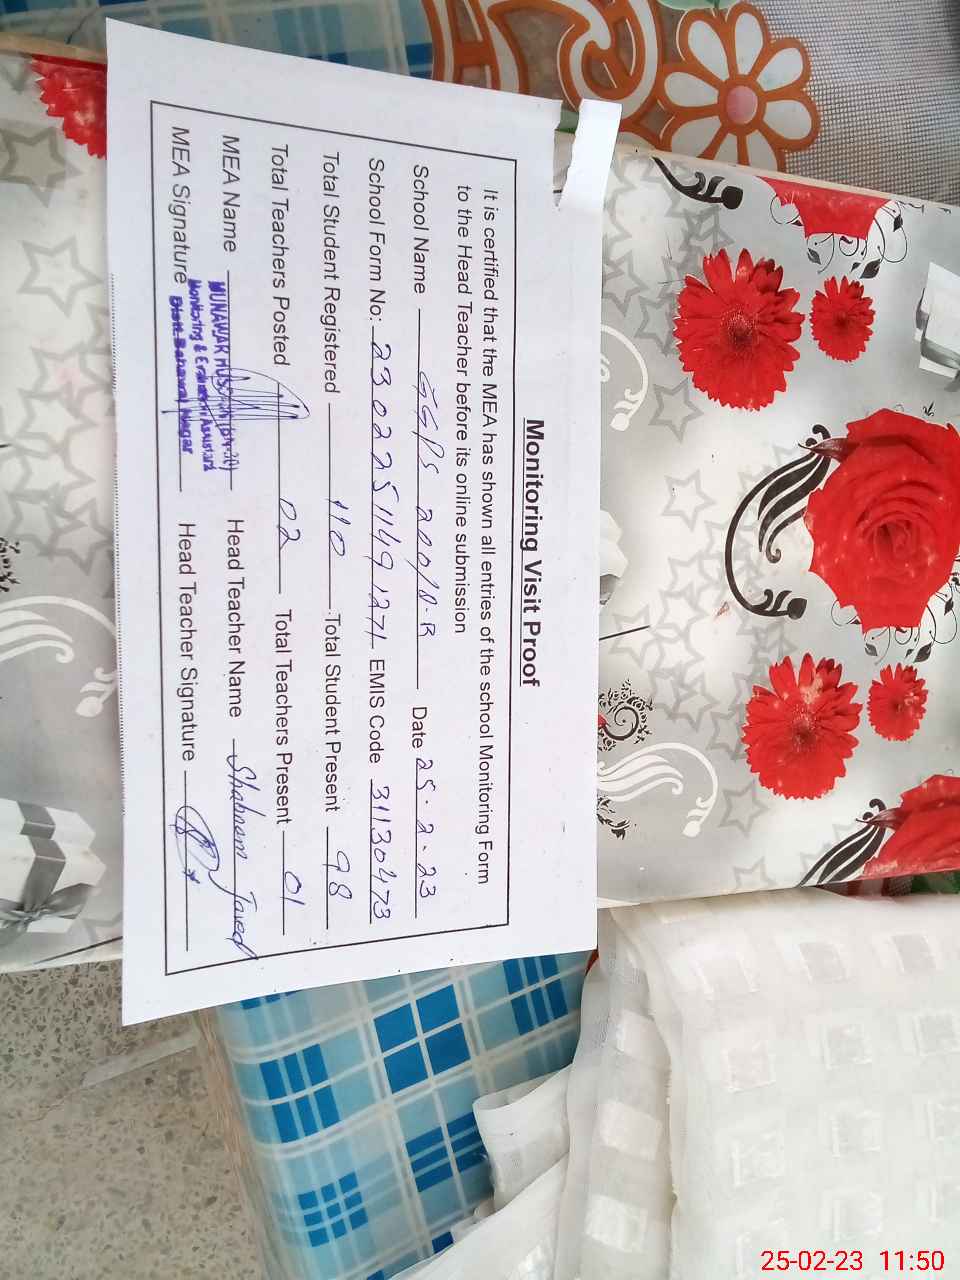 Monitoring Visit Proof
It is certified that the MEA has shown all entries of the school Monitoring Form
to the Head Teacher before its online submission
School Name GGPS 200/8.R Date 25.2.23
School Form No: 230225 1149 1271 EMIS Code 31130473
Total Student Registered 110 Total Student Present 98
Total Teachers Posted 02 Total Teachers Present 01
MEA Name MUNAWAR Head Teacher Name Shabnam Javed
Monitoring & Evaluation Assistant
MEA Signature Distt. Bahawal Nagar Head Teacher Signature
25-02-23 11:50